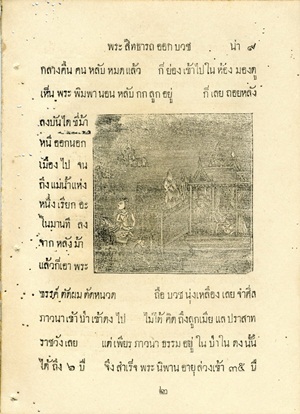 พระ สิทธารถ ออก บวช น่า ๗
กลางคืน คน หลับ หมด แล้ว ก็ ย่อง เข้า ไป ใน ห้อง มอง ดู
เห็น พระ พิมพา นอน หลับ กก ลูก อยู่ ก็ เลย ถอย หลัง
ลง บัน ได ขี่ ม้า
หนี ออก นอก
เมือง ไป จน
ถึง แม่ น้ำ แห่ง
หนึ่ง เรียก อะ
โนมานที ลง
จาก หลัง ม้า
แล้ว ก็ เอา พระ
ขรรค์ ตัด ผม ตัด หนวด ถือ บวช นุ่ง เหลือง เลย จำ ศีล
ภาวนา เข้า ป่า เข้า ดง ไป ไม่ ได้ คิด ถึง ลูก เมีย แล ปราสาท
ราชวัง เลย แต่ เพียร ภาวนา ธรรม อยู่ ใน ป่า ใน ดง นั้น
ได้ ถึง ๖ ปี จึง สำเร็จ พระ นิพาน อายุ ล่วง เข้า ๓๕ ปี